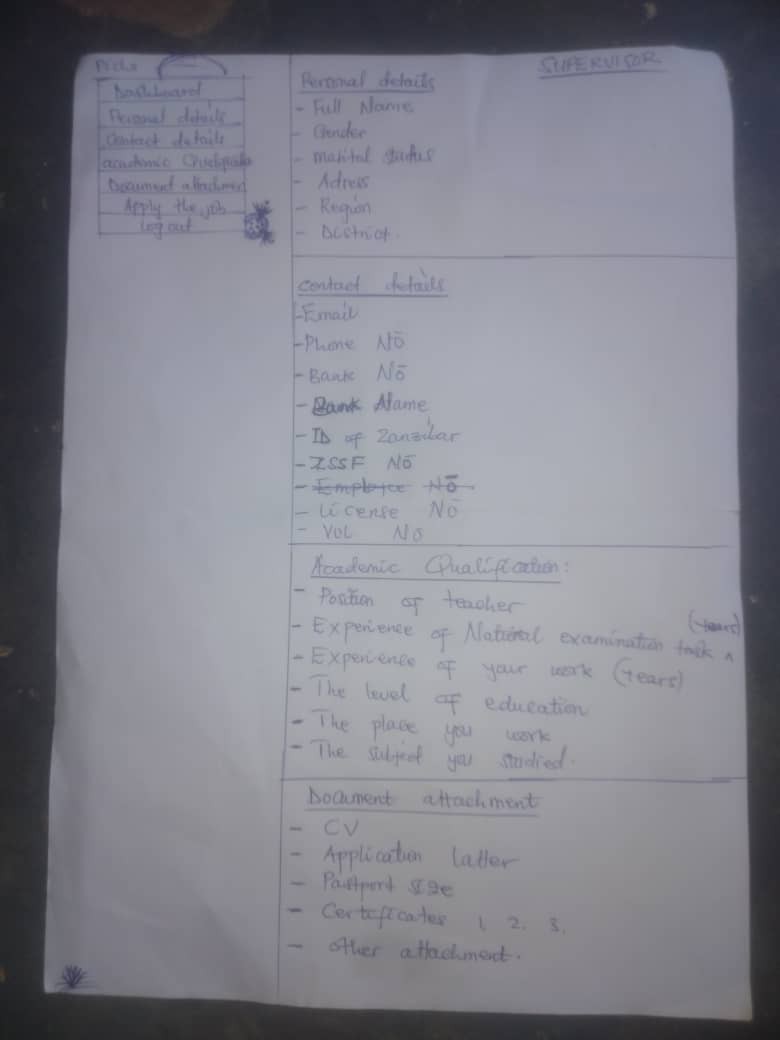 Picha
Dashboard
Personal details
Contact details
academic
Document attachment
Apply the job
log out
SUPERVISOR
Personal details
- Full Name
- Gender
- marital status
- Adress
- Region
- District.
contact details
- Email
- Phone Nō
- Bank Nō
- Bank Name
- ID of Zanzibar
- ZSSF Nō
- Employee Nō.
- License Nō
- Vol No
Academic Qualification:
- Position of teacher
- Experience of National examination task ^ (years)
- Experience of your work (years)
- The level of education
- The place you work
- The subject you studied.
Document attachment
- CV
- Application latter
- Pastport size
- Certeficates 1, 2. 3.
- other attachment.